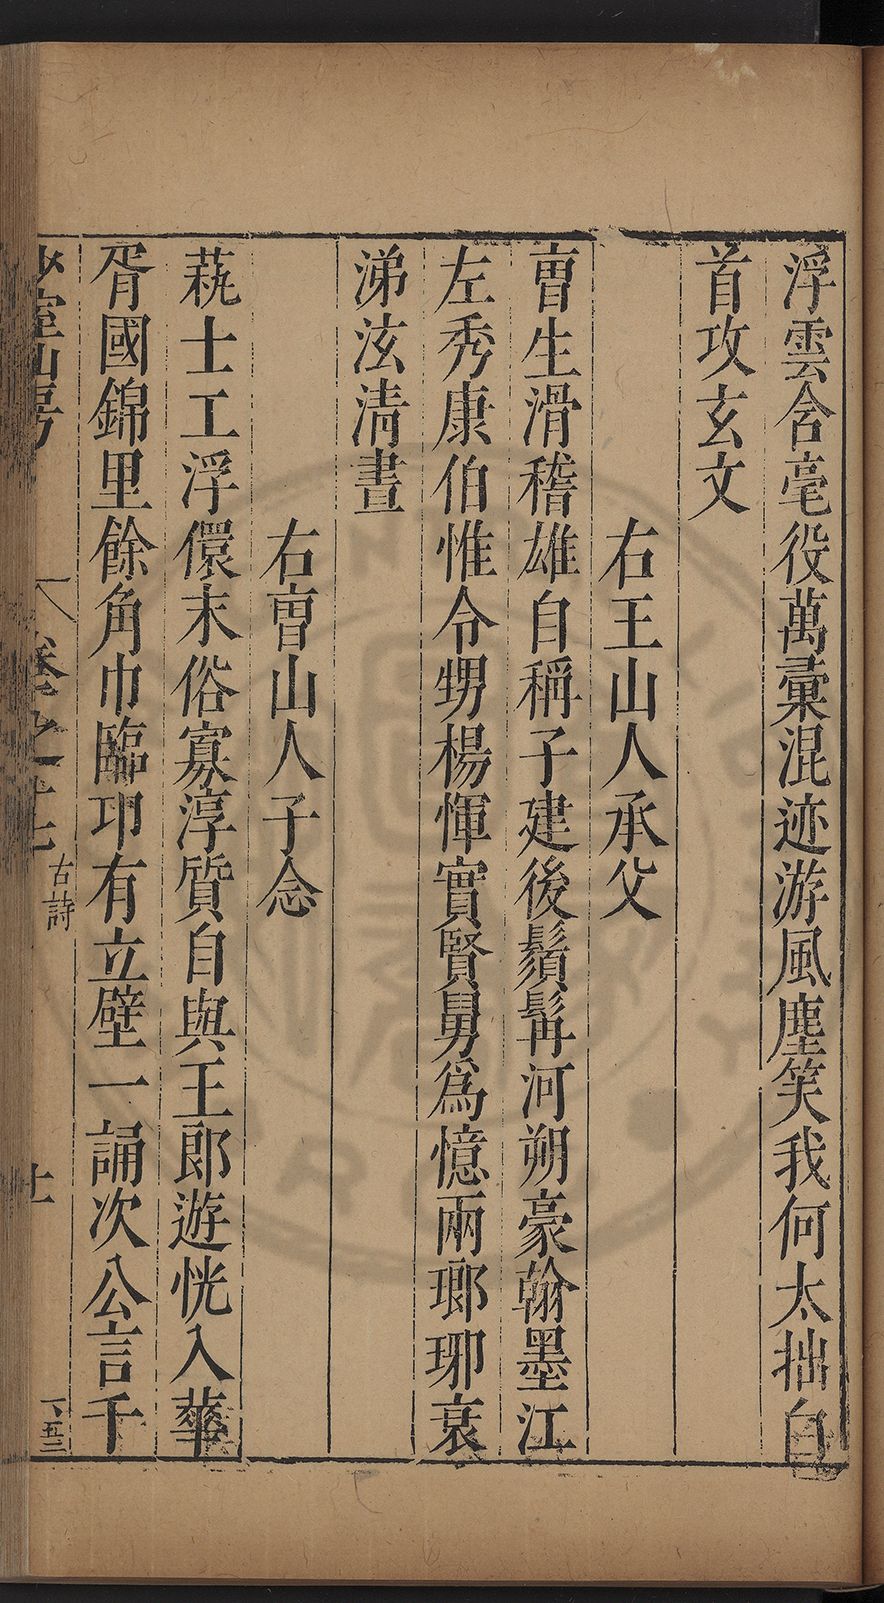 浮雲含毫役萬彙混迹游風塵笑我何太拙自
首攻玄文
右王山人承父
曺生滑稽雄自稱子建後鬚髯河朔豪翰墨江
左秀康伯惟令甥楊惲實賢舅爲憶兩瑯琊衰
涕泫清晝
右曺山人子念
蓺士工浮儇末俗寡淳質自與王郎遊恍入華
胥國錦里餘角巾臨邛有立壁一誦次公言千
少室山房
卷之十七
古詩
十一